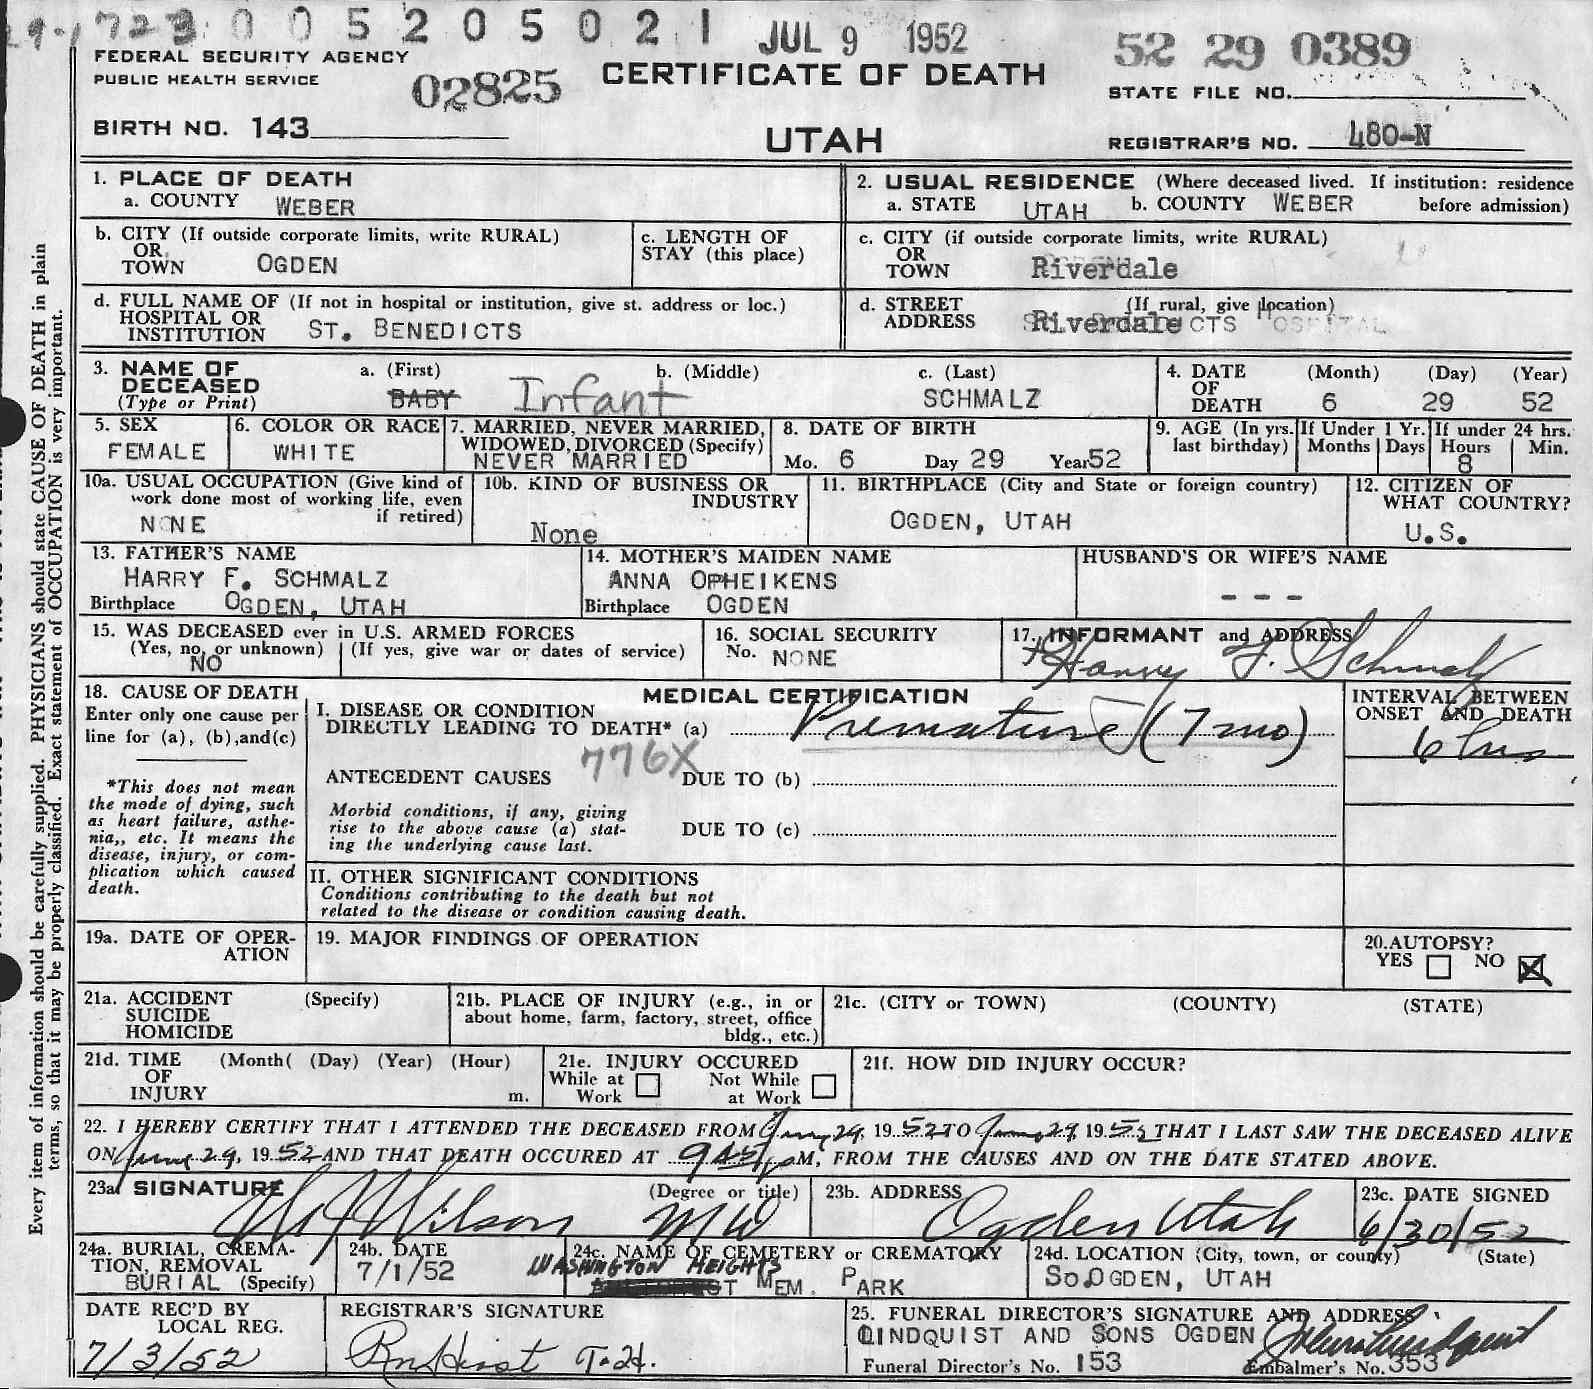 29-1723 0 0 5 2 0 5 0 2 1 JUL 9 1952
52 29 0389
FEDERAL SECURITY AGENCY
PUBLIC HEALTH SERVICE
02825
CERTIFICATE OF DEATH
STATE FILE NO.
BIRTH NO. 143
UTAH
REGISTRAR'S NO. 480-N
1. PLACE OF DEATH
a. COUNTY WEBER
2. USUAL RESIDENCE (Where deceased lived. If institution: residence
a. STATE UTAH b. COUNTY WEBER before admission)
b. CITY (If outside corporate limits, write RURAL)
OR
TOWN OGDEN
c. LENGTH OF
STAY (this place)
c. CITY (if outside corporate limits, write RURAL)
OR
TOWN Riverdale
d. FULL NAME OF (If not in hospital or institution, give st. address or loc.)
HOSPITAL OR
INSTITUTION ST. BENEDICTS
d. STREET (If rural, give location)
ADDRESS Riverdale
3. NAME OF
DECEASED
(Type or Print)
a. (First) b. (Middle) c. (Last)
BABY Infant SCHMALZ
4. DATE (Month) (Day) (Year)
OF
DEATH 6 29 52
5. SEX
FEMALE
6. COLOR OR RACE
WHITE
7. MARRIED, NEVER MARRIED,
WIDOWED, DIVORCED (Specify)
NEVER MARRIED
8. DATE OF BIRTH
Mo. 6 Day 29 Year 52
9. AGE (In yrs.
last birthday)
If Under 1 Yr.
Months Days
If under 24 hrs.
Hours Min.
8
10a. USUAL OCCUPATION (Give kind of
work done most of working life, even
if retired)
NONE
10b. KIND OF BUSINESS OR
INDUSTRY
None
11. BIRTHPLACE (City and State or foreign country)
OGDEN, UTAH
12. CITIZEN OF
WHAT COUNTRY?
U.S.
13. FATHER'S NAME
HARRY F. SCHMALZ
Birthplace OGDEN, UTAH
14. MOTHER'S MAIDEN NAME
ANNA OPHEIKENS
Birthplace OGDEN
HUSBAND'S OR WIFE'S NAME
- - -
15. WAS DECEASED ever in U.S. ARMED FORCES
(Yes, no, or unknown) (If yes, give war or dates of service)
NO
16. SOCIAL SECURITY
No. NONE
17. INFORMANT and ADDRESS
Harry F. Schmalz
18. CAUSE OF DEATH
Enter only one cause per
line for (a), (b), and(c)
*This does not mean
the mode of dying, such
as heart failure, asthe-
nia,, etc. It means the
disease, injury, or com-
plication which caused
death.
MEDICAL CERTIFICATION
I. DISEASE OR CONDITION
DIRECTLY LEADING TO DEATH* (a) Premature (7 mo)
776X
ANTECEDENT CAUSES DUE TO (b)
Morbid conditions, if any, giving
rise to the above cause (a) stat-
ing the underlying cause last.
DUE TO (c)
II. OTHER SIGNIFICANT CONDITIONS
Conditions contributing to the death but not
related to the disease or condition causing death.
INTERVAL BETWEEN
ONSET AND DEATH
6 hrs
19a. DATE OF OPER-
ATION
19. MAJOR FINDINGS OF OPERATION
20. AUTOPSY?
YES NO X
21a. ACCIDENT (Specify)
SUICIDE
HOMICIDE
21b. PLACE OF INJURY (e.g., in or
about home, farm, factory, street, office
bldg., etc.)
21c. (CITY or TOWN) (COUNTY) (STATE)
21d. TIME (Month( (Day) (Year) (Hour)
OF
INJURY m.
21e. INJURY OCCURED
While at Not While
Work at Work
21f. HOW DID INJURY OCCUR?
22. I HEREBY CERTIFY THAT I ATTENDED THE DECEASED FROM June 29, 19 52 TO June 29, 19 52 THAT I LAST SAW THE DECEASED ALIVE
ON June 29, 19 52 AND THAT DEATH OCCURED AT 9 45 p M., FROM THE CAUSES AND ON THE DATE STATED ABOVE.
23a. SIGNATURE (Degree or title)
Wilson
23b. ADDRESS
Ogden Utah
23c. DATE SIGNED
6/30/52
24a. BURIAL, CREMA-
TION, REMOVAL
BURIAL (Specify)
24b. DATE
7/1/52
24c. NAME OF CEMETERY or CREMATORY
WASHINGTON HEIGHTS
MEM. PARK
24d. LOCATION (City, town, or county) (State)
SO.OGDEN, UTAH
DATE REC'D BY
LOCAL REG.
7/3/52
REGISTRAR'S SIGNATURE
25. FUNERAL DIRECTOR'S SIGNATURE AND ADDRESS
LINDQUIST AND SONS OGDEN
Funeral Director's No. 153 Embalmer's No. 353
Every item of information should be carefully supplied. PHYSICIANS should state CAUSE OF DEATH in plain
terms, so that it may be properly classified. Exact statement of OCCUPATION is very important.